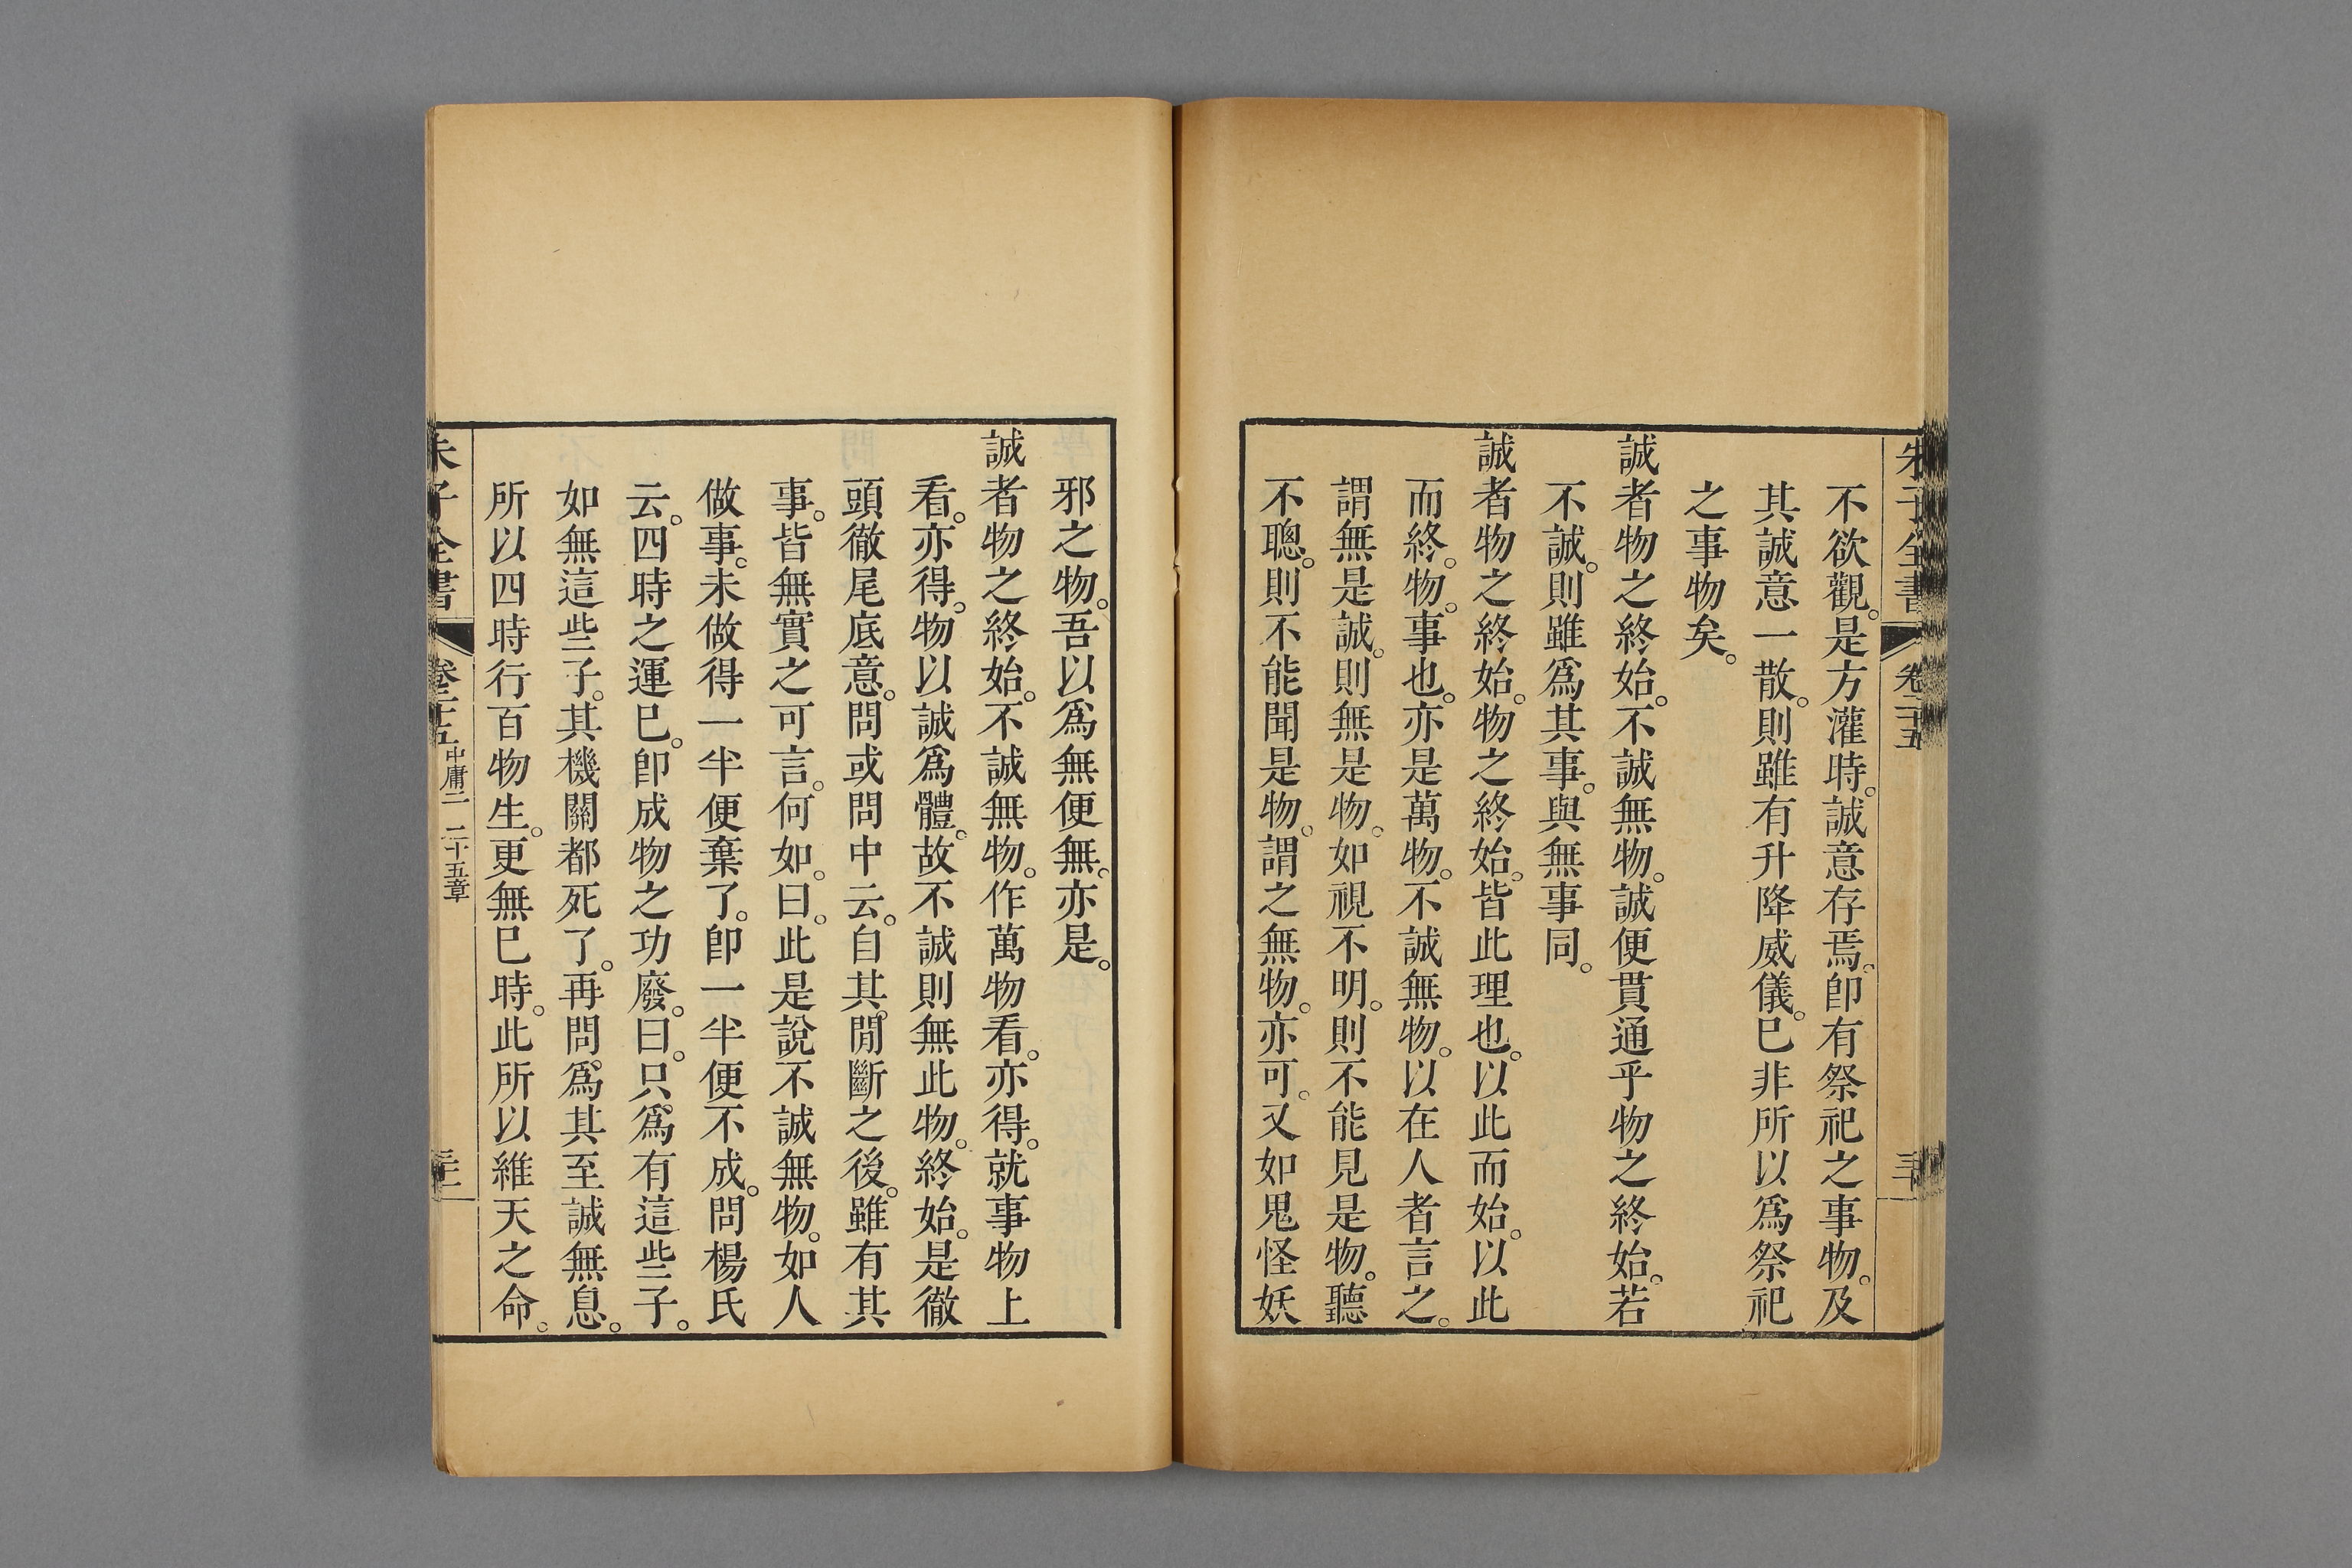 朱子全書 卷二十五
不欲觀。是方灌時。誠意存焉。卽有祭祀之事物。及
其誠意一散。則雖有升降威儀。已非所以爲祭祀
之事物矣。
誠者物之終始。不誠無物。誠便貫通乎物之終始。若
不誠。則雖爲其事。與無事同。
誠者物之終始。物之終始。皆此理也。以此而始。以此
而終。物。事也。亦是萬物。不誠無物。以在人者言之。
謂無是誠。則無是物。如視不明。則不能見是物。聽
不聰。則不能聞是物。謂之無物。亦可。又如鬼怪妖
邪之物。吾以爲無便無。亦是。
誠者物之終始。不誠無物。作萬物看。亦得。就事物上
看。亦得。物以誠爲體。故不誠則無此物。終始。是徹
頭徹尾底意。問或問中云。自其閒斷之後。雖有其
事。皆無實之可言。何如。曰。此是說不誠無物。如人
做事。未做得一半便棄了。卽一半便不成。問楊氏
云。四時之運已。卽成物之功廢。曰。只爲有這些子。
如無這些子。其機關都死了。再問。爲其至誠無息。
所以四時行百物生。更無已時。此所以維天之命。
朱子全書 卷二十五 中庸二 二十五章